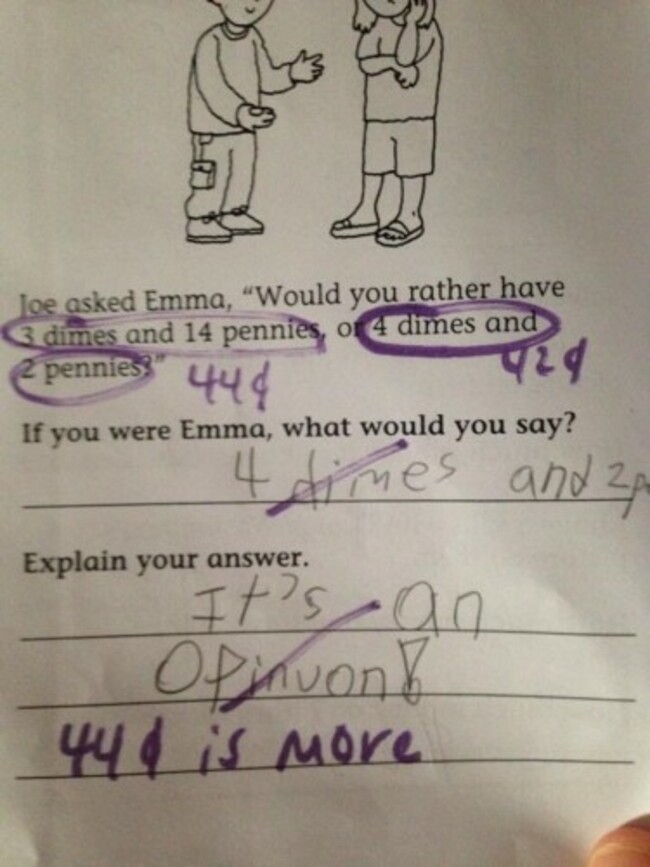 Joe asked Emma, "Would you rather have
3 dimes and 14 pennies, or 4 dimes and
2 pennies?" 44¢ 42¢
If you were Emma, what would you say?
4 dimes and 2
Explain your answer.
It's an
Opinvon!
44¢ is more